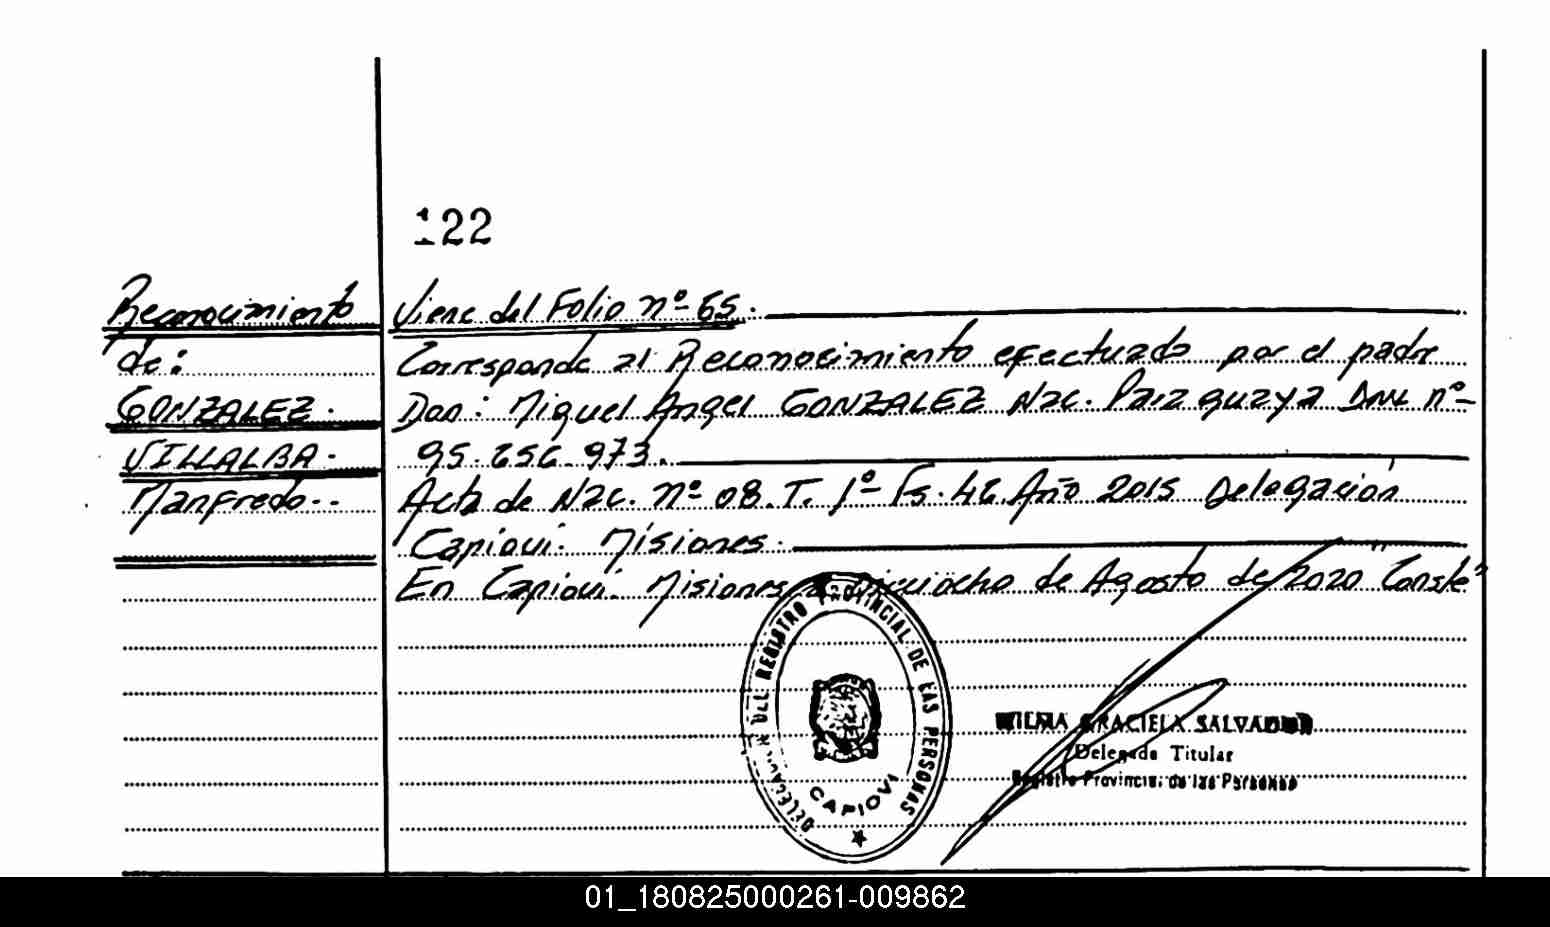 122
Reconocimiento
de:
GONZALEZ
VILLALBA.
Manfredo..
Viene del Folio nº 65.
Corresponde al Reconocimiento efectuado por el padre
Don: Miguel Angel GONZALEZ Nac. Paraguaya Dni nº
95. 973.
Acta de Nac. nº 08. T. 1º Fs. Año 2015 Delegación
Capiovi. Misiones.
En Capiovi. Misiones a dieciocho de Agosto de 2020 Conste
DELEGACION DEL REGISTRO PROVINCIAL DE LAS PERSONAS
CAPIOVI
WILMA GRACIELA SALVADOR
Delegada Titular
Registro Provincial de las Personas
01_180825000261-009862